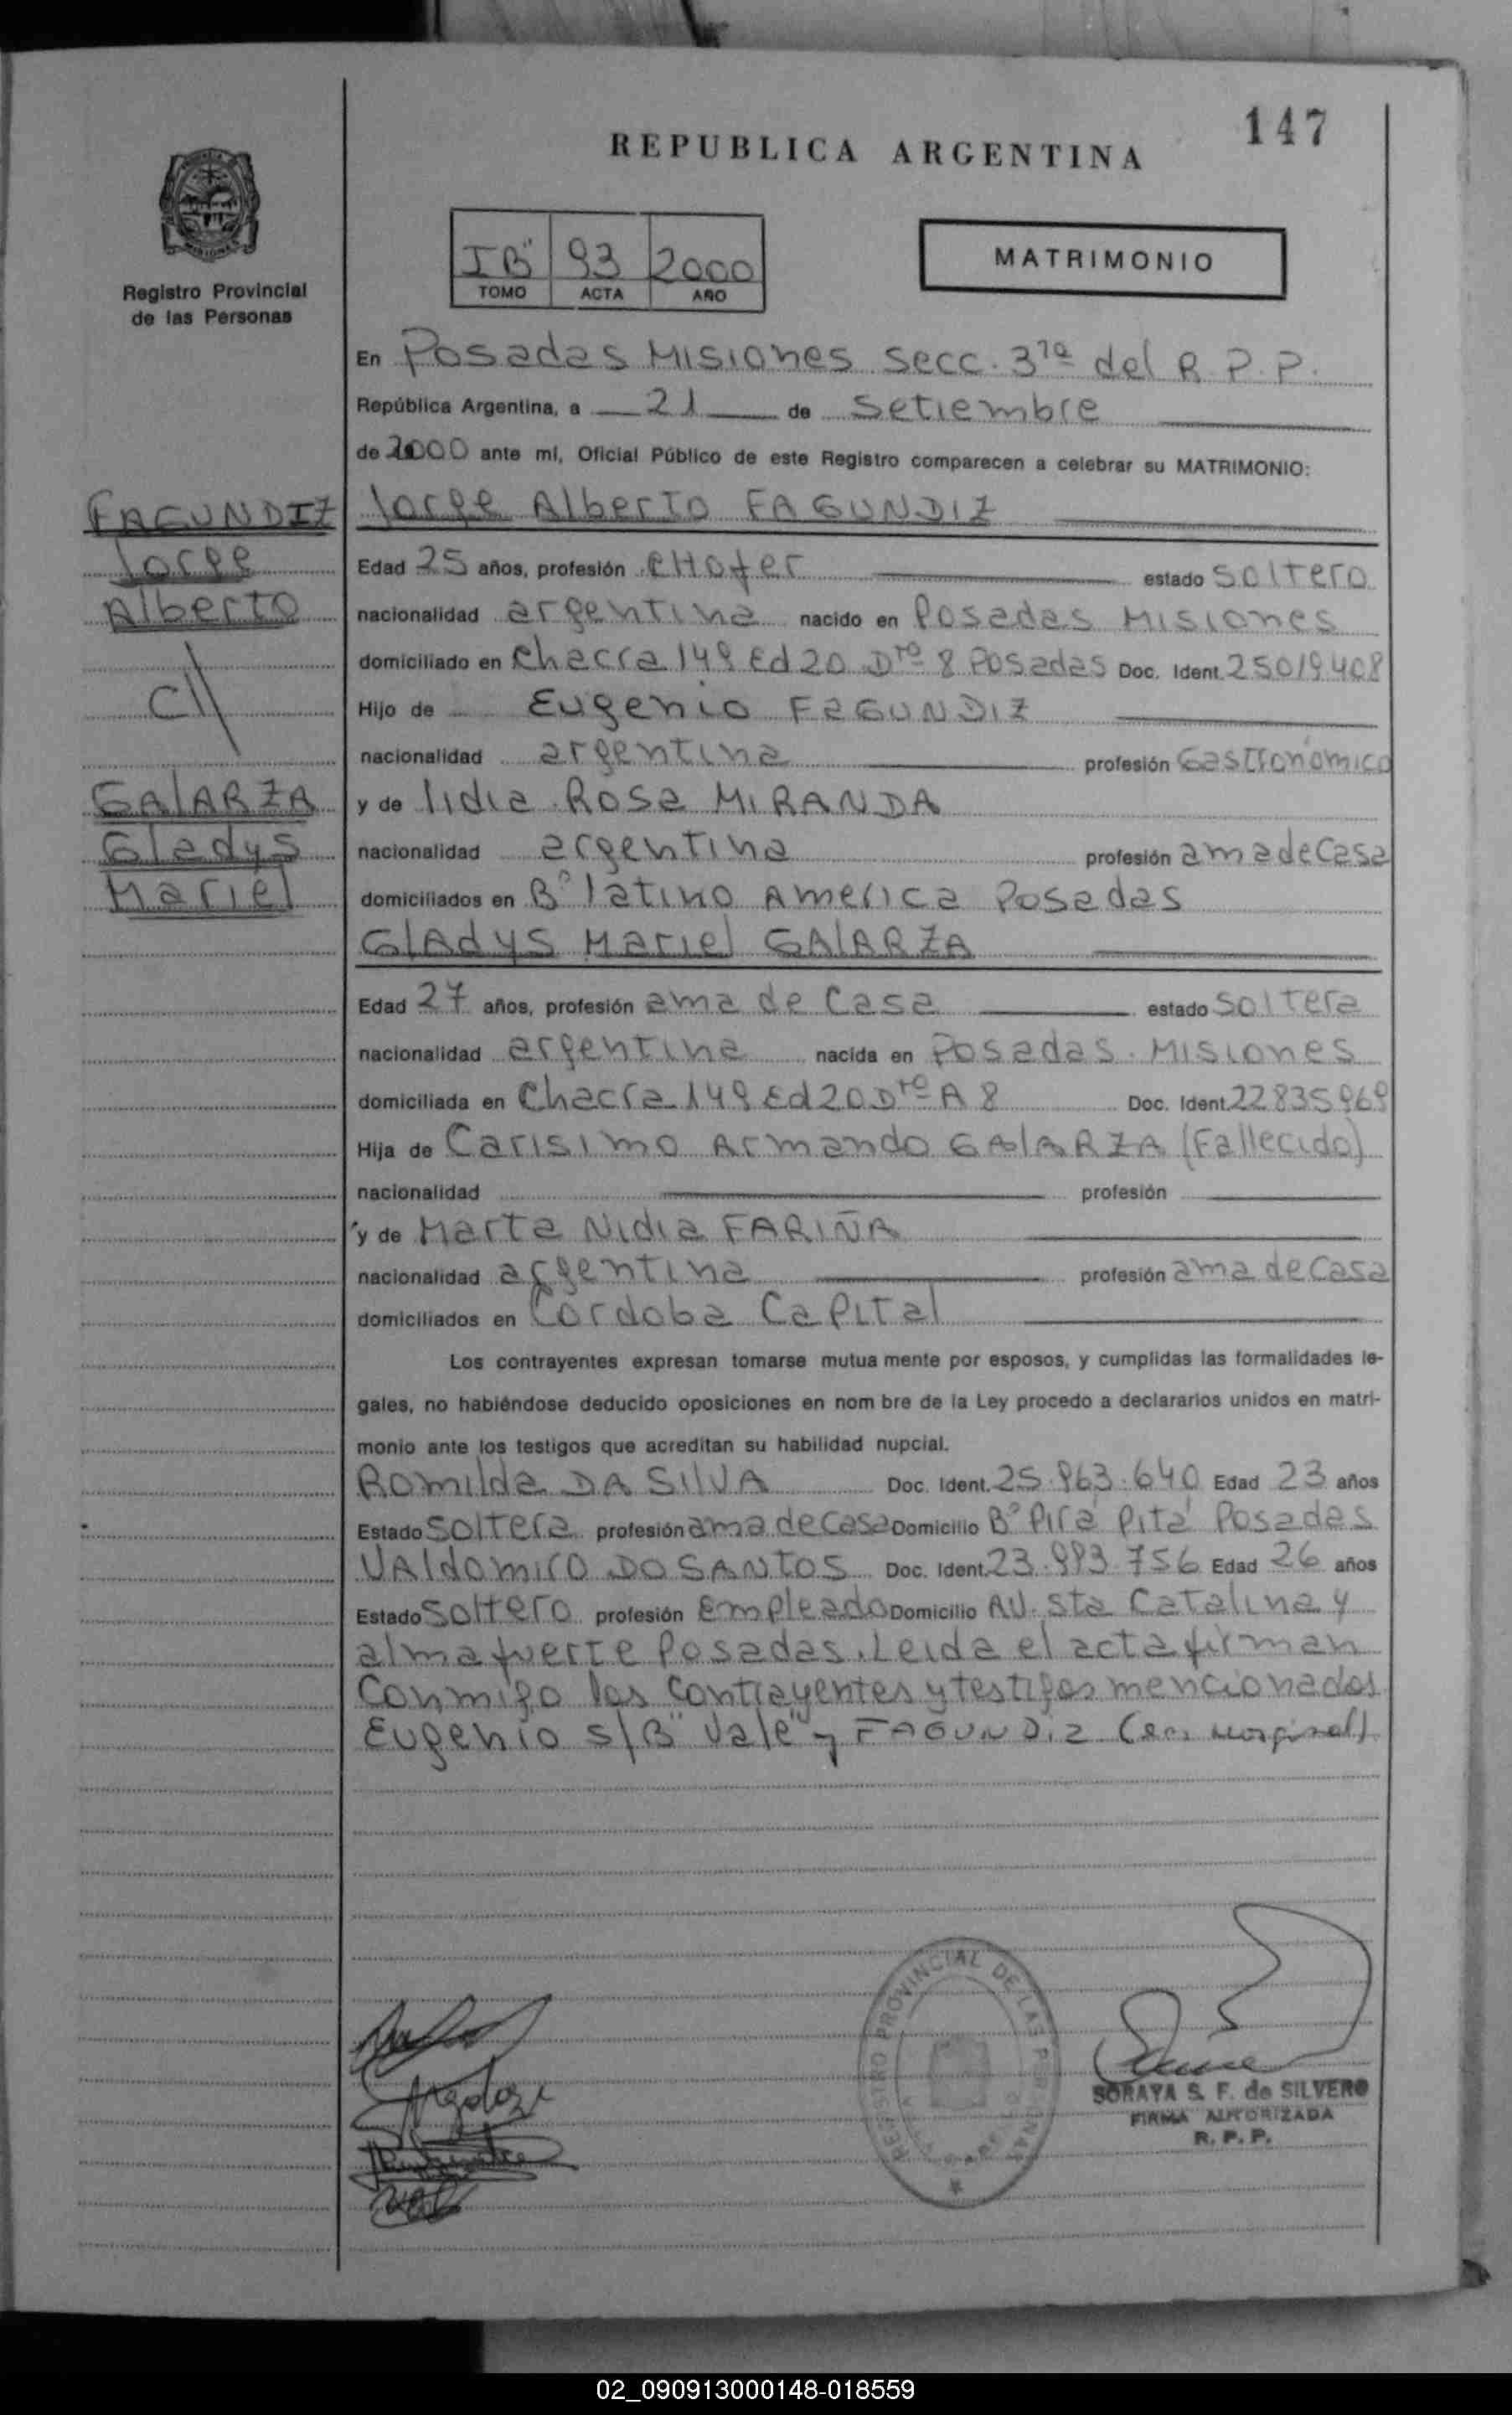 147
REPUBLICA ARGENTINA
MISIONES
Registro Provincial
de las Personas
IB" 93 2000
TOMO ACTA AÑO
MATRIMONIO
En Posadas Misiones secc. 3ra del R.P.P.
República Argentina, a 21 de Setiembre
de 2000 ante mí, Oficial Público de este Registro comparecen a celebrar su MATRIMONIO:
FAGUNDIZ
Jorge
Alberto
C//
GALARZA
Gladys
Mariel
Jorge Alberto FAGUNDIZ
Edad 25 años, profesión CHofer estado soltero
nacionalidad argentina nacido en Posadas Misiones
domiciliado en Chacra 149 Ed 20 Dto 8 Posadas Doc. Ident. 25019408
Hijo de Eugenio FAGUNDIZ
nacionalidad argentina profesión Gastronómico
y de lidia Rosa MIRANDA
nacionalidad argentina profesión ama de Casa
domiciliados en B° latino America Posadas
GlAdys Mariel GAlARZA
Edad 27 años, profesión ama de Casa estado soltera
nacionalidad argentina nacida en Posadas. Misiones
domiciliada en Chacra 149 Ed 20 Dto A 8 Doc. Ident. 22835969
Hija de Carisimo Armando GAlARZA (Fallecido)
nacionalidad profesión
y de Marta Nidia FARIÑA
nacionalidad argentina profesión ama de Casa
domiciliados en Cordoba Capital
Los contrayentes expresan tomarse mutua mente por esposos, y cumplidas las formalidades le-
gales, no habiéndose deducido oposiciones en nom bre de la Ley procedo a declararlos unidos en matri-
monio ante los testigos que acreditan su habilidad nupcial.
Romilda DA SIlVA Doc. Ident. 25.963.640 Edad 23 años
Estado soltera profesión ama de casa Domicilio B° Pirá Pitá Posadas
VAldomiro DO SANTOS Doc. Ident. 23.993.756 Edad 26 años
Estado Soltero profesión Empleado Domicilio AV. Sta Catalina y
almafuerte Posadas. Leida el acta firman
Conmigo los Contrayentes y testigos mencionados
Eugenio s/B" Vale" y FAGUNDiz
REGISTRO PROVINCIAL DE LAS PERSONAS
SORAYA S. F. de SILVERO
FIRMA AUTORIZADA
R. P. P.
02_090913000148-018559